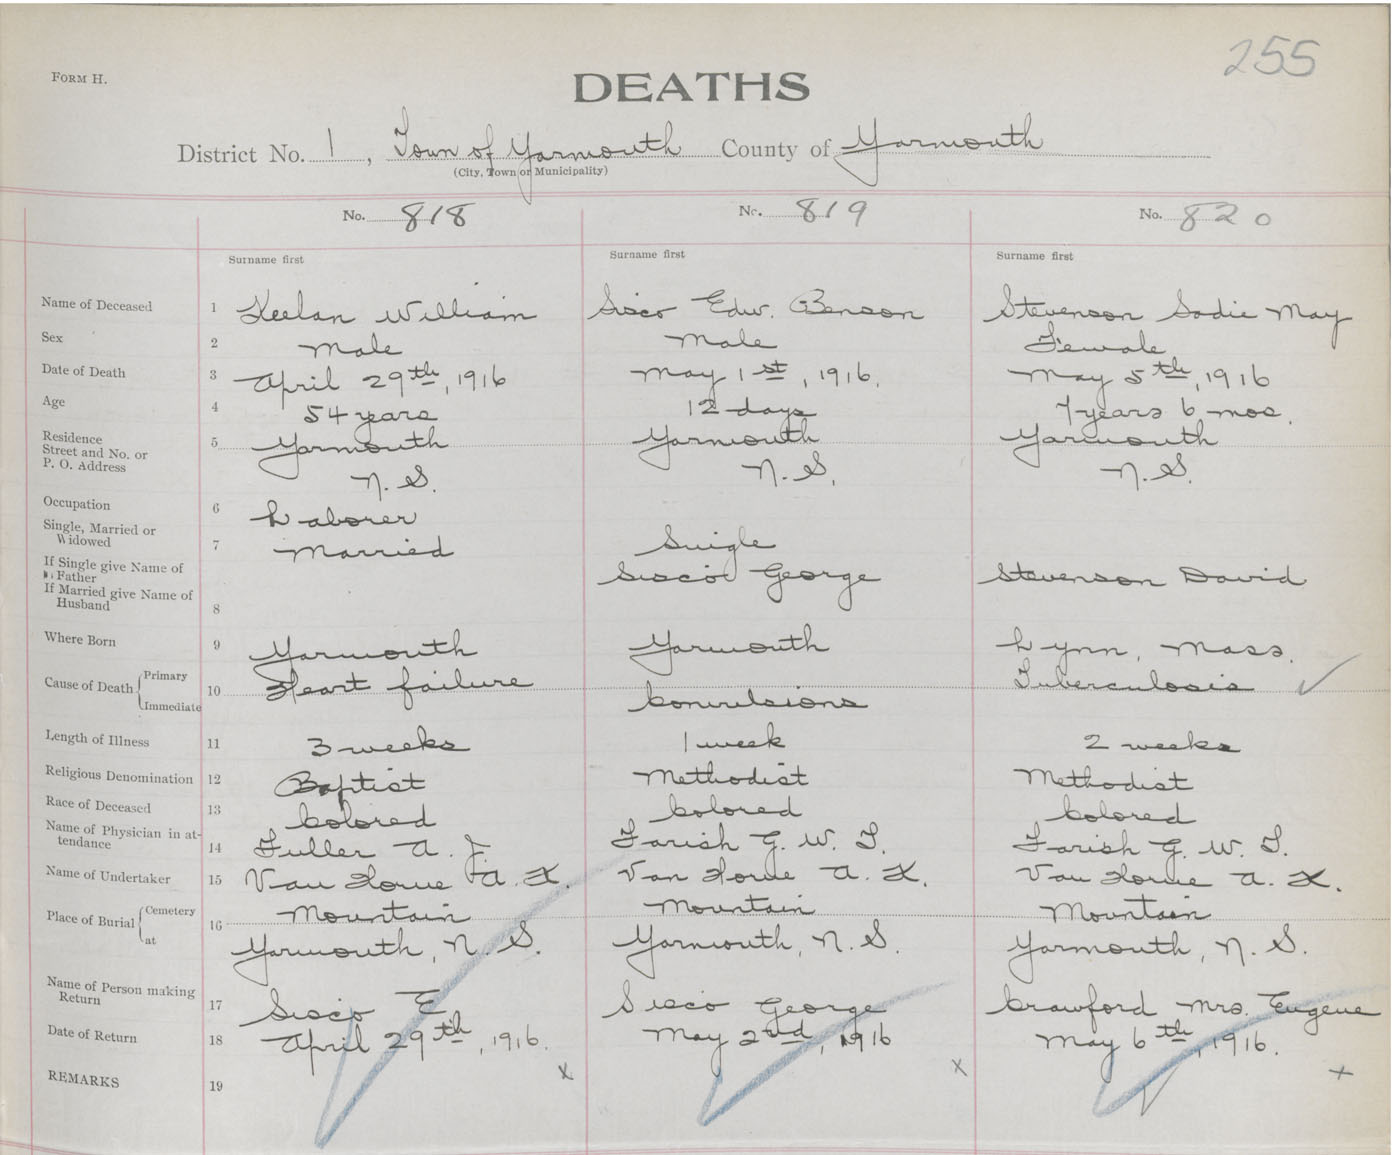 255
FORM H.
DEATHS
District No. 1, Town of Yarmouth County of Yarmouth
(City, Town or Municipality)
No. 818 No. 819 No. 820
Surname first Surname first Surname first
Name of Deceased 1 Keelan William Sisco Edw. Benson Stevenson Sadie May
Sex 2 Male Male Female
Date of Death 3 April 29th, 1916 May 1st, 1916. May 5th, 1916
Age 4 54 years 12 days 7 years 6 mos.
Residence 5 Yarmouth Yarmouth Yarmouth
Street and No. or
P. O. Address N. S. N. S. N. S.
Occupation 6 Laborer
Single, Married or
Widowed 7 Married Single
If Single give Name of
Father Sisco George Stevenson David
If Married give Name of
Husband 8
Where Born 9 Yarmouth Yarmouth Lynn, Mass.
Cause of Death Primary 10 Heart failure Tuberculosis
Immediate Convulsions
Length of Illness 11 3 weeks 1 week 2 weeks
Religious Denomination 12 Baptist Methodist Methodist
Race of Deceased 13 Colored Colored Colored
Name of Physician in at-
tendance 14 Fuller A. J. Farish G. W. T. Farish G. W. T.
Name of Undertaker 15 Van Horne A. K. Van Horne A. K. Van Horne A. K.
Place of Burial Cemetery 16 Mountain Mountain Mountain
at Yarmouth, N. S. Yarmouth, N. S. Yarmouth, N. S.
Name of Person making
Return 17 Sisco E. Sisco George Crawford Mrs. Eugene
Date of Return 18 April 29th, 1916. May 2nd, 1916 May 6th, 1916.
REMARKS 19 x x x